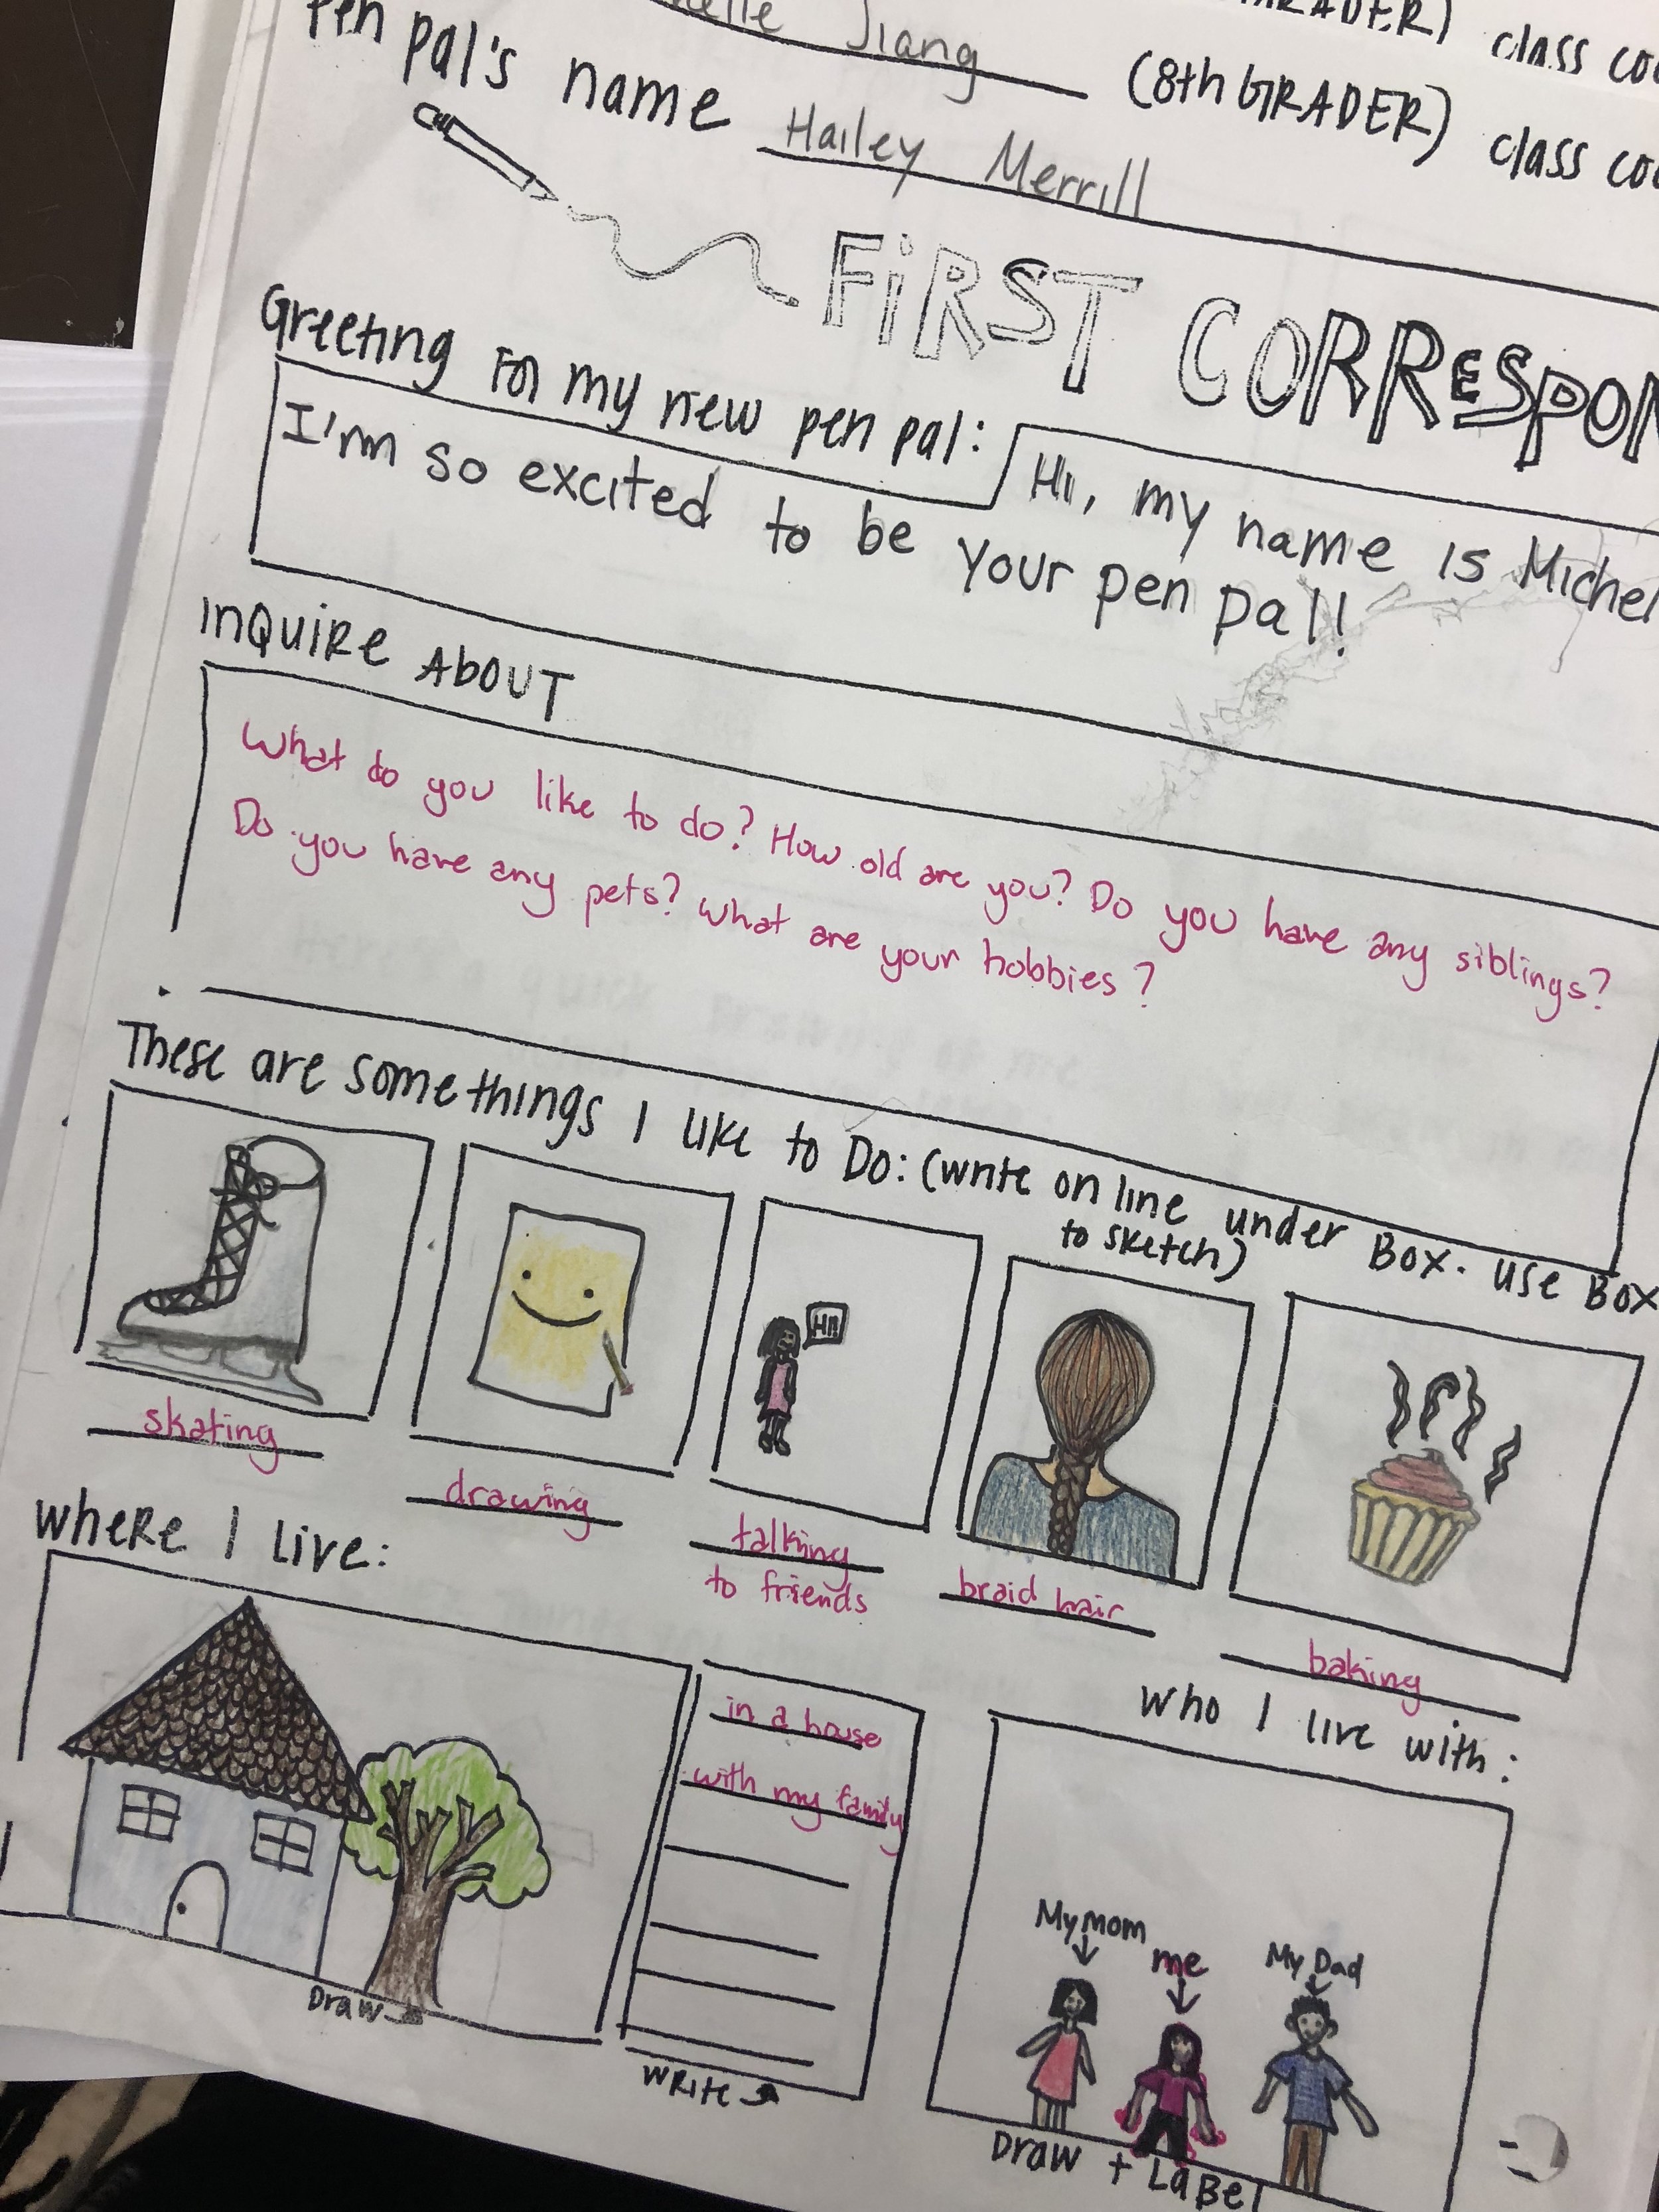 Jiang class
Pen pal's name (8th GRADER) class
Hailey Merrill
FiRST CORRESPON
Greeting for my new pen pal:
Hi, my name is Michel
I'm so excited to be your pen pal!
INQUIRE ABOUT
What do you like to do? How old are you? Do you have any siblings?
Do you have any pets? What are your hobbies?
These are some things I like to Do: (write on line under Box. use Box
to sketch)
Hi!
skating
drawing
talking
to friends
braid hair
baking
where I live:
in a house
with my family
Draw
write
who I live with:
My mom
me
My Dad
Draw + Label